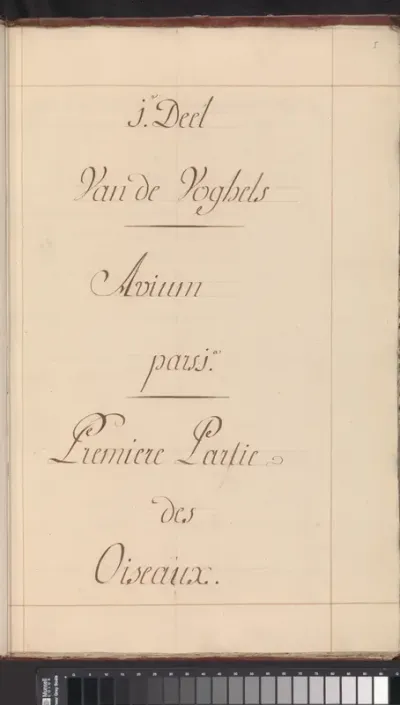 5
j.e Deel
Van de Voghels
Avium
pars j.a
Premiere Partie
des
Oiseaux.